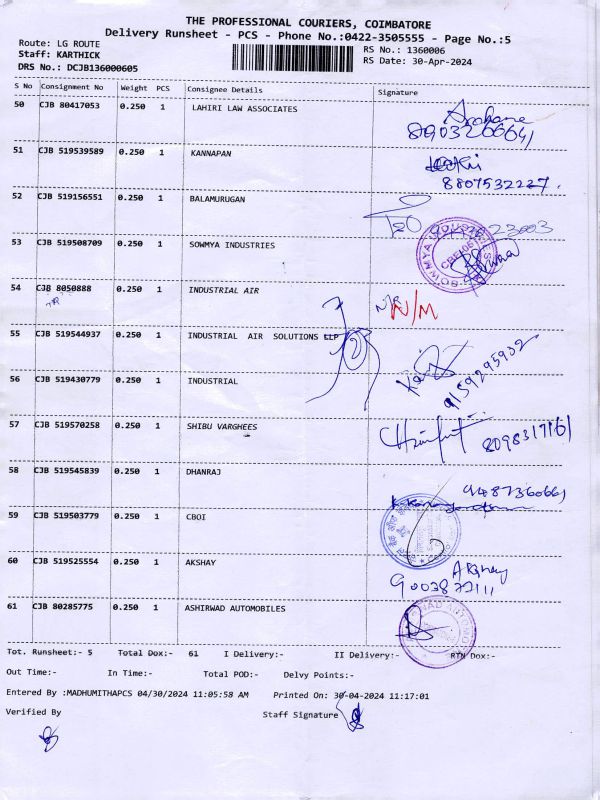 THE PROFESSIONAL COURIERS, COIMBATORE
Delivery Runsheet - PCS - Phone No.:0422-3505555 - Page No.:5
Route: LG ROUTE
Staff: KARTHICK
DRS No.: DCJB136000605
RS No.: 1360006
RS Date: 30-Apr-2024
S No Consignment No Weight PCS Consignee Details Signature
50 CJB 80417053 0.250 1 LAHIRI LAW ASSOCIATES
51 CJB 519539589 0.250 1 KANNAPAN
8807532227.
52 CJB 519156551 0.250 1 BALAMURUGAN
53 CJB 519508709 0.250 1 SOWMYA INDUSTRIES
54 CJB 8050888 0.250 1 INDUSTRIAL AIR
N/M
55 CJB 519544937 0.250 1 INDUSTRIAL AIR SOLUTIONS LLP
56 CJB 519430779 0.250 1 INDUSTRIAL
9159295932
57 CJB 519570258 0.250 1 SHIBU VARGHEES
8098317161
58 CJB 519545839 0.250 1 DHANRAJ
9487360661
59 CJB 519503779 0.250 1 CBOI
60 CJB 519525554 0.250 1 AKSHAY
Akshay
9003872111
61 CJB 80285775 0.250 1 ASHIRWAD AUTOMOBILES
Tot. Runsheet:- 5 Total Dox:- 61 I Delivery:- II Delivery:- RTN Dox:-
Out Time:- In Time:- Total POD:- Delvy Points:-
Entered By :MADHUMITHAPCS 04/30/2024 11:05:58 AM Printed On: 30-04-2024 11:17:01
Verified By Staff Signature